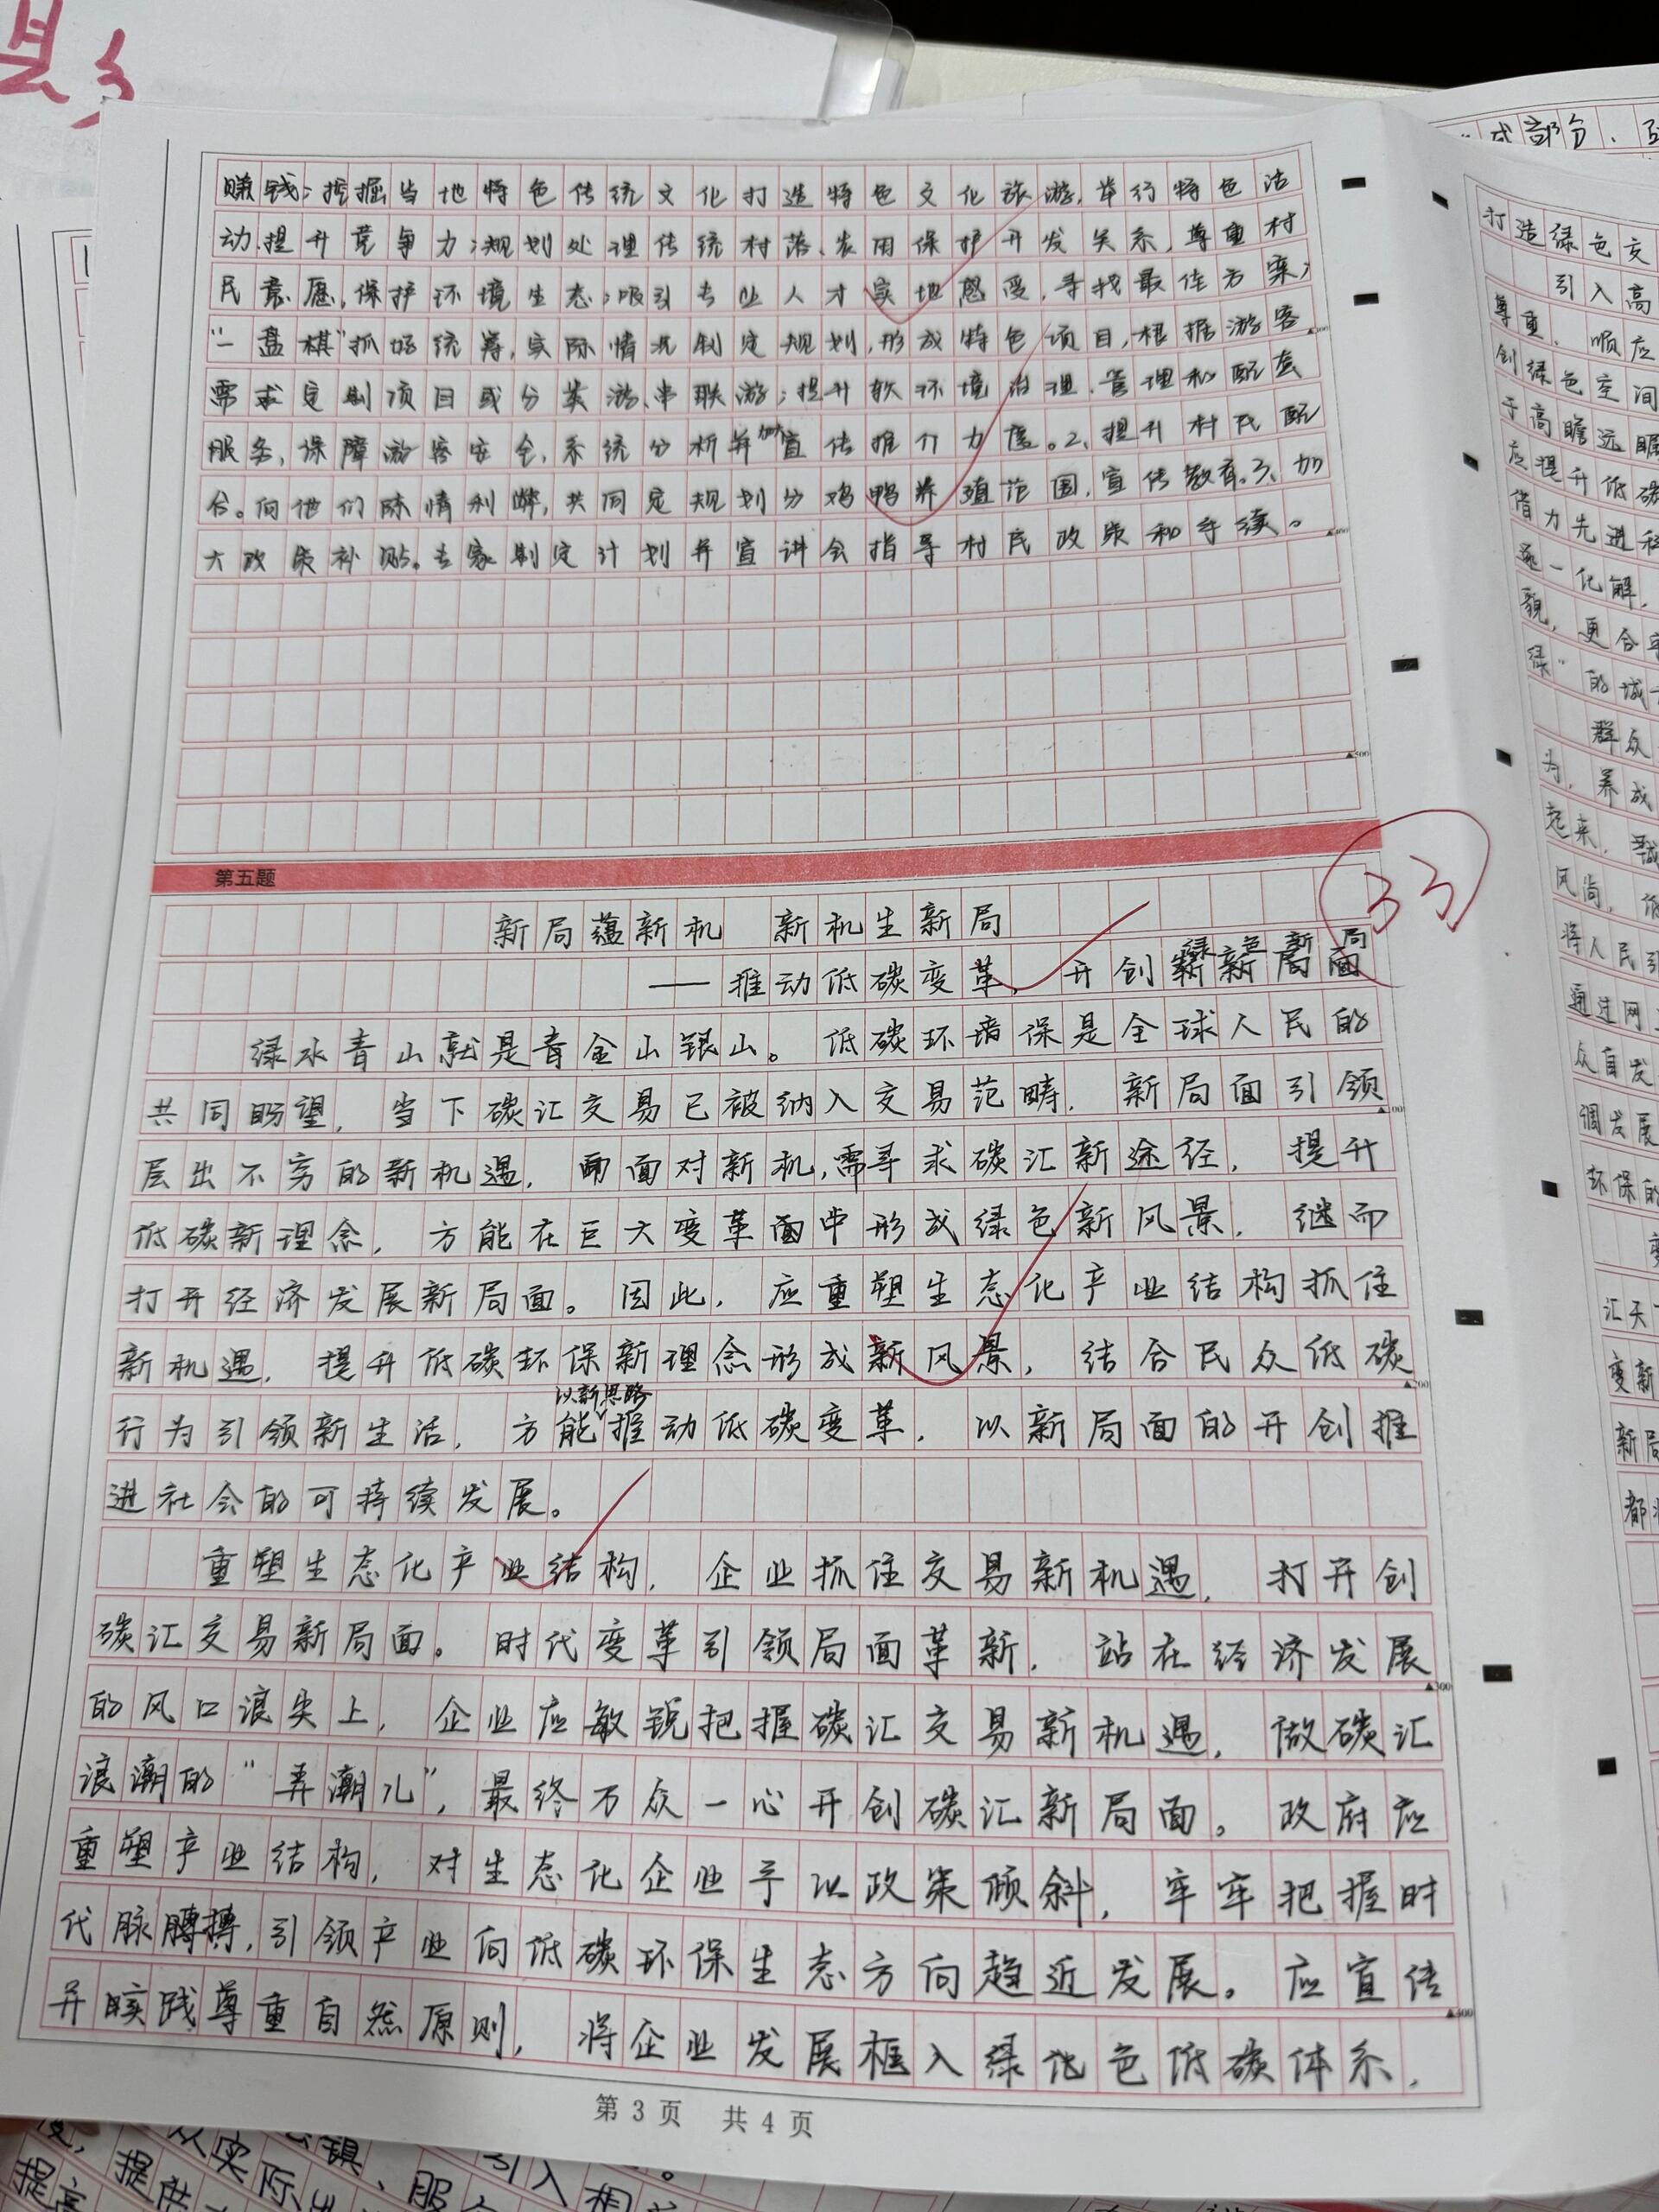 县乡
赚钱；挖掘当地特色传统文化打造特色文化旅游，举行特色活
动，提升竞争力；规划处理传统村落、农田保护开发关系，尊重村
民意愿，保护环境生态；吸引专业人才实地感受，寻找最佳方案；
"一盘棋"抓好统筹，实际情况制定规划，形成特色项目，根据游客
需求定制项目或分类游、串联游；提升软环境治理、管理和配套
服务，保障游客安全，系统分析并加大宣传推介力度。2、提升村民配
合。向他们陈情利弊，共同定规划分鸡鸭养殖范围，宣传教育。3、加
大政策补贴。专家制定计划并宣讲会指导村民政策和手续。
▲500
第五题
33
新局蕴新机 新机生新局
——推动低碳变革，开创绿色新局
绿水青山就是青金山银山。低碳环境保是全球人民的
共同盼望，当下碳汇交易已被纳入交易范畴，新局面引领
层出不穷的新机遇，面对新机，需寻求碳汇新途径，提升
低碳新理念，方能在巨大变革面中形成绿色新风景，继而
打开经济发展新局面。因此，应重塑生态化产业结构抓住
新机遇，提升低碳环保新理念形成新风景，结合民众低碳
行为引领新生活，方能以新思路推动低碳变革，以新局面的开创推
▲200
进社会的可持续发展。
重塑生态化产业结构，企业抓住交易新机遇，打开创
碳汇交易新局面。时代变革引领局面革新，站在经济发展
▲300
的风口浪尖上，企业应敏锐把握碳汇交易新机遇，做碳汇
浪潮的"弄潮儿"，最终万众一心开创碳汇新局面。政府应
重塑产业结构，对生态化企业予以政策倾斜，牢牢把握时
代脉膊搏，引领产业向低碳环保生态方向趋近发展。应宣传
▲400
并践尊重自然原则，将企业发展框入绿化色低碳体系，
第 3 页 共 4 页
成部分、
打造绿色交
引入高
尊重、顺应
创绿色空间
于高瞻远瞩
应提升低碳
借力先进科
逐一化解，
貌，更合
绿"的城
群众
为，养成
起来，
风尚，
将人民引
通过网
众自发
调发展
环保的
汇天
变新
新局
都